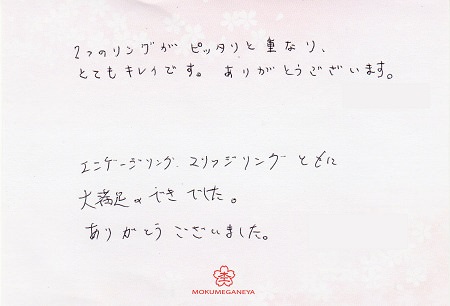 2つのリングがピッタリと重なり、
とてもキレイです。ありがとうございます。
エンゲージリング、マリッジリングともに
大満足のできでした。
ありがとうございました。
MOKUMEGANEYA